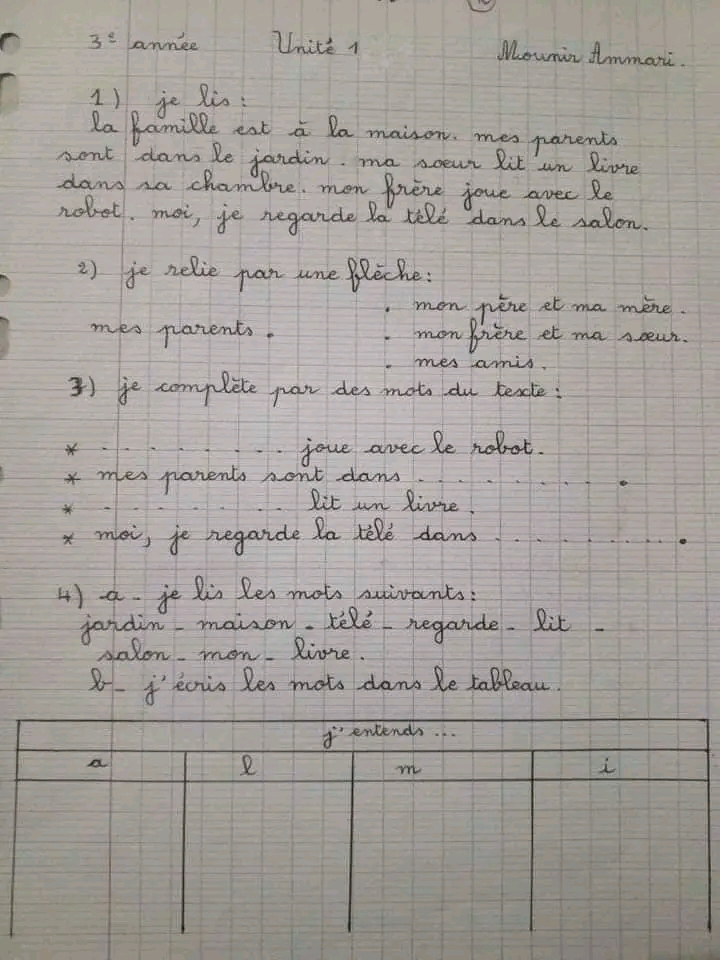 3e année Unité 1 Mounir Ammari.
1) je lis :
la famille est à la maison. mes parents
sont dans le jardin. ma sœur lit un livre
dans sa chambre. mon frère joue avec le
robot. moi, je regarde la télé dans le salon.
2) je relie par une flèche :
. mon père et ma mère.
mes parents . . mon frère et ma sœur.
. mes amis.
3) je complète par des mots du texte :
* . . . . . . . . . joue avec le robot.
* mes parents sont dans . . . . . . . . . .
* . . . . . . . . . lit un livre.
* moi, je regarde la télé dans . . . . . . . . . .
4) a - je lis les mots suivants :
jardin - maison - télé - regarde - lit -
salon - mon - livre.
b - j'écris les mots dans le tableau.
j'entends ...
a l m i